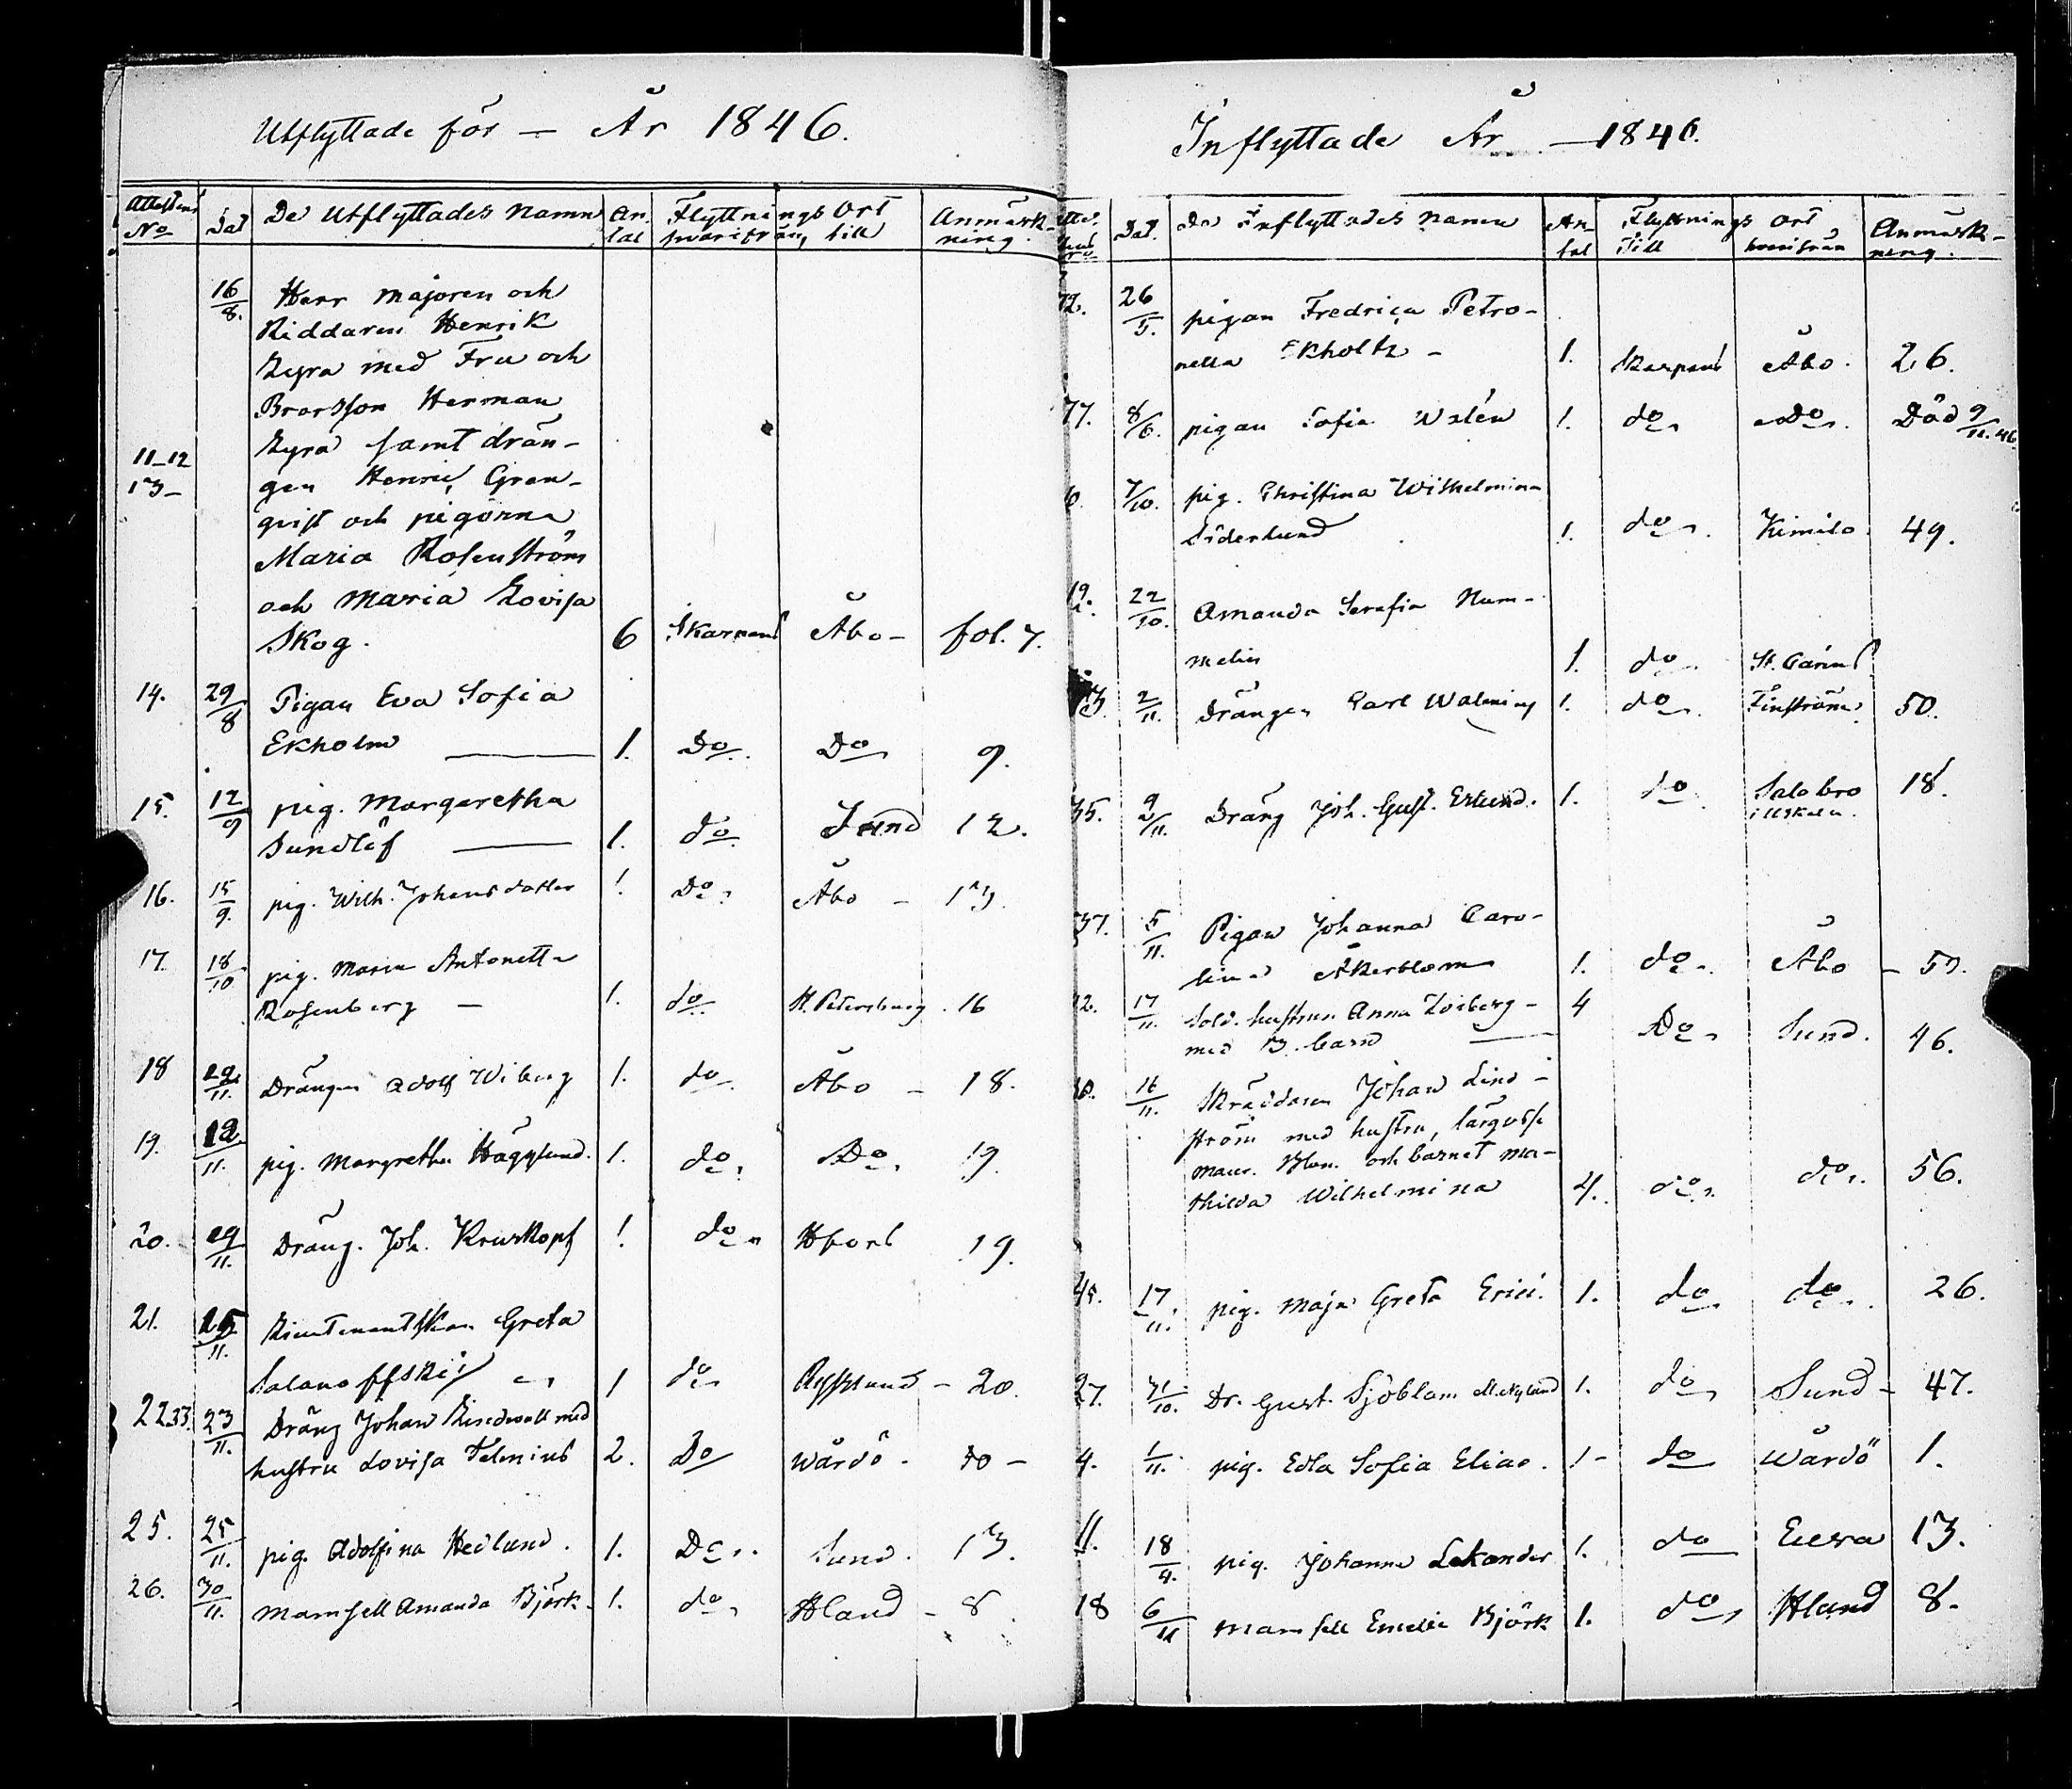 Utflyttade för — År 1846.
Attestens No | Dat | De Utflyttades Namn | An-tal | Flyttnings Ort hvarifrån, till | Anmärk-ning.
16/8. Herr Majoren och
Riddaren Henrik
med Fru och
Brorsson Herman
samt drän-
11-12 gen Henric Gran-
13- qvist och pigorna
Maria Rosenström
och Maria Lovisa
Skog. 6 Skarpans Åbo - fol. 7.
14. 29/8 Pigan Eva Sofia
Ekholm — 1. Do. Do 9.
15. 12/9 pig. Margaretha
Sundlöf — 1. do. Sund 12.
16. 15/9. pig. Wilh. Johansdotter 1. Do. Åbo - 13.
17. 18/10 pig. Maria Antonetta
Rosenberg — 1. do. St. Petersburg. 16
18 /11. Drängen Adolf Wiberg 1. do. Åbo - 18.
19. 12/11. pig. Margretha Hägglund. 1. do. Do. 19.
20. /11. Dräng. Joh. Kruskopf 1. do. Hfors 19.
21. 25/11. Lieutenantskan Greta
1 do. Ryssland - 20.
22 23/11. Dräng Johan med
hustru Lovisa 2. Do Wårdö. do -
25. 25/11. pig. Adolfina Hedlund. 1. Do. Sund. 13.
26. 30/11. Mamsell Amanda Björk. 1. do. Hland - 8.
Inflyttade År — 1846.
Dat. | De Inflyttades Namn | An-tal | Flyttnings Ort Till hvarifrån | Anmärk-ning.
72. 26/5. pigan Fredrica Petro-
nella Ekholtz - 1. Skarpans Åbo. 26.
77. 8/6. pigan Sofia Walén 1. do. Do. Död 9/11. 46.
7/10. pig. Christina Wilhelmina
Söderlund 1. do. Kimito. 49.
19. 22/10. Amanda Serafia Num-
melin 1. do. St. Carins
2/11. Drängen Carl 1. do. Finström. 50.
35. 9/11. Dräng Joh. Gust. 1. do. Salo bro 18.
37. 5/11. Pigan Johanna Caro-
lina Åkerblom 1. do. Åbo - 53.
12. 17/11. Sold. hustrun Anna - 4
med 3. barn — Do. Sund. 46.
16/11. Skräddaren Johan Lind-
ström med hustru, lärgosse
och barnet Ma-
thilda Wilhelmina 4. do. do. 56.
45. 17/11. pig. Maja Greta 1. do. do. 26.
27. 31/10. Dr. Gust. Sjöblom 1. do. Sund - 47.
4. 1/11. pig. Edla Sofia Elias. 1- do Wårdö 1.
11. 18/4. pig. Johanna Lekander 1. do Eura 13.
18 6/11 Mamsell Emelie Björk 1. do. Hland 8.